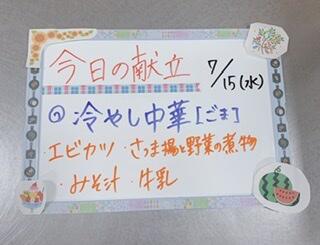 今日の献立 7/15(水)
◎ 冷やし中華[ごま]
・エビカツ ・さつま揚と野菜の煮物
・みそ汁 ・牛乳